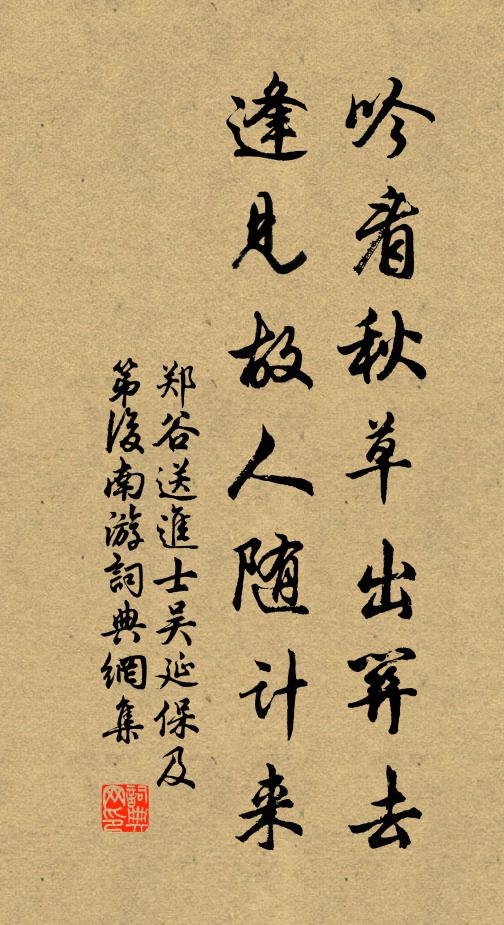 吟看秋草出关去
逢见故人随计来
郑谷送進士吴延保及
第後南游詞典網集
詞典
网印